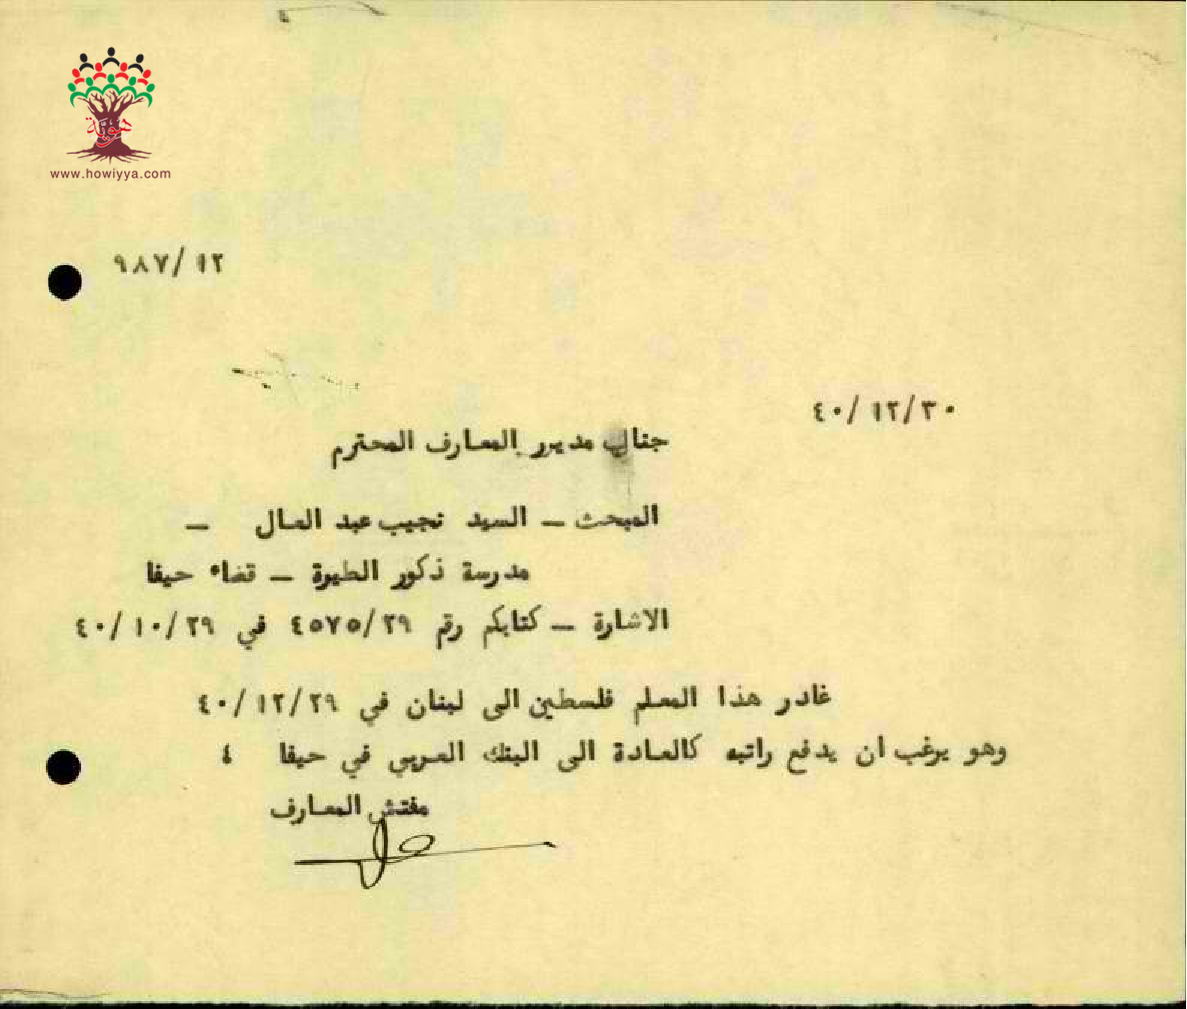 هوية
www.howiyya.com
٩٨٧/ ١٢
٤٠/ ١٢/٣٠
جناب مدير المعارف المحترم
المبحث – السيد نجيب عبد العال –
مدرسة ذكور الطيرة – قضاء حيفا
الاشارة – كتابكم رقم ٤٥٧٥/٢٩ في ٤٠/١٠/٢٩
غادر هذا المعلم فلسطين الى لبنان في ٤٠/١٢/٢٩
وهو يرغب ان يدفع راتبه كالعادة الى البنك العربي في حيفا ٤
مفتش المعارف